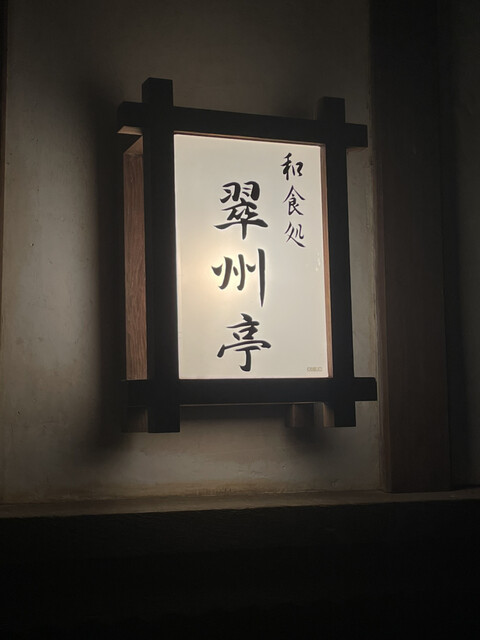 和食処
翠州亭